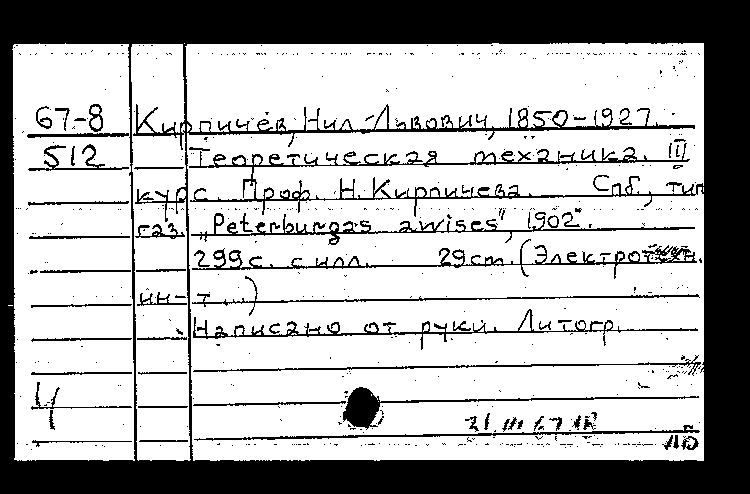 67-8 Кирпичев, Нил Львович, 1850-1927.
512 Теоретическая механика. III
курс. Проф. Н. Кирпичева. Спб., тип.
газ. „Peterburgas awises", 1902.
299с. с илл. 29см. (Электротехн.
ин-т...)
Написано от руки. Литогр.
Ч
31.III 67